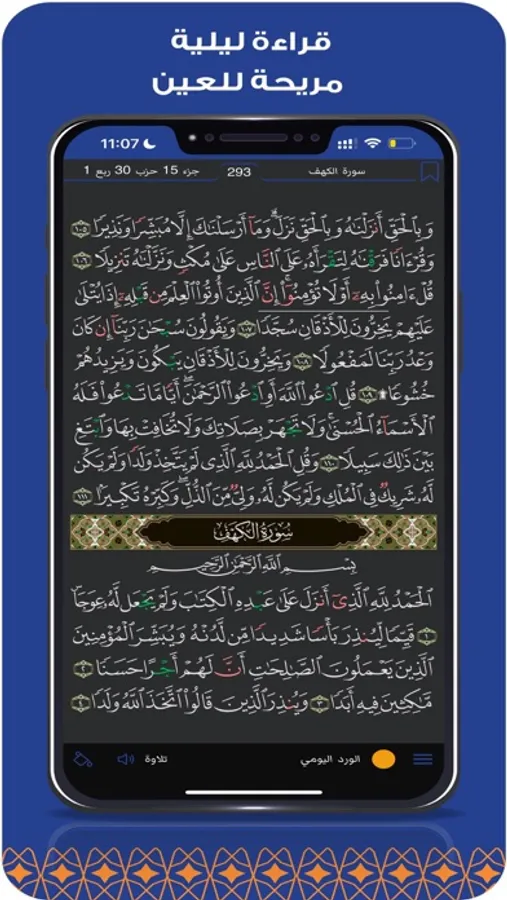 قراءة ليلية
مريحة للعين
11:07
سورة الكهف
293
جزء 15 حزب 30 ربع 1
وَبِالْحَقِّ أَنزَلْنَاهُ وَبِالْحَقِّ نَزَلَ ۗ وَمَا أَرْسَلْنَاكَ إِلَّا مُبَشِّرًا وَنَذِيرًا ١٠٥
وَقُرْءَانًا فَرَقْنَاهُ لِتَقْرَأَهُ عَلَى النَّاسِ عَلَىٰ مُكْثٍ وَنَزَّلْنَاهُ تَنزِيلًا ١٠٦
قُلْ ءَامِنُوا بِهِ أَوْ لَا تُؤْمِنُوا ۚ إِنَّ الَّذِينَ أُوتُوا الْعِلْمَ مِن قَبْلِهِ إِذَا يُتْلَىٰ
عَلَيْهِمْ يَخِرُّونَ لِلْأَذْقَانِ سُجَّدًا ١٠٧ وَيَقُولُونَ سُبْحَانَ رَبِّنَا إِن كَانَ
وَعْدُ رَبِّنَا لَمَفْعُولًا ١٠٨ وَيَخِرُّونَ لِلْأَذْقَانِ يَبْكُونَ وَيَزِيدُهُمْ
خُشُوعًا ۩ ١٠٩ قُلِ ادْعُوا اللَّهَ أَوِ ادْعُوا الرَّحْمَٰنَ ۖ أَيًّا مَّا تَدْعُوا فَلَهُ
الْأَسْمَاءُ الْحُسْنَىٰ ۚ وَلَا تَجْهَرْ بِصَلَاتِكَ وَلَا تُخَافِتْ بِهَا وَابْتَغِ
بَيْنَ ذَٰلِكَ سَبِيلًا ١١٠ وَقُلِ الْحَمْدُ لِلَّهِ الَّذِي لَمْ يَتَّخِذْ وَلَدًا وَلَمْ يَكُن
لَّهُ شَرِيكٌ فِي الْمُلْكِ وَلَمْ يَكُن لَّهُ وَلِيٌّ مِّنَ الذُّلِّ ۖ وَكَبِّرْهُ تَكْبِيرًا ١١١
سُورَةُ الْكَهْفِ
بِسْمِ اللَّهِ الرَّحْمَٰنِ الرَّحِيمِ
الْحَمْدُ لِلَّهِ الَّذِي أَنزَلَ عَلَىٰ عَبْدِهِ الْكِتَابَ وَلَمْ يَجْعَل لَّهُ عِوَجًا
١ قَيِّمًا لِّيُنذِرَ بَأْسًا شَدِيدًا مِّن لَّدُنْهُ وَيُبَشِّرَ الْمُؤْمِنِينَ
الَّذِينَ يَعْمَلُونَ الصَّالِحَاتِ أَنَّ لَهُمْ أَجْرًا حَسَنًا ٢
مَّاكِثِينَ فِيهِ أَبَدًا ٣ وَيُنذِرَ الَّذِينَ قَالُوا اتَّخَذَ اللَّهُ وَلَدًا ٤
الورد اليومي
تلاوة